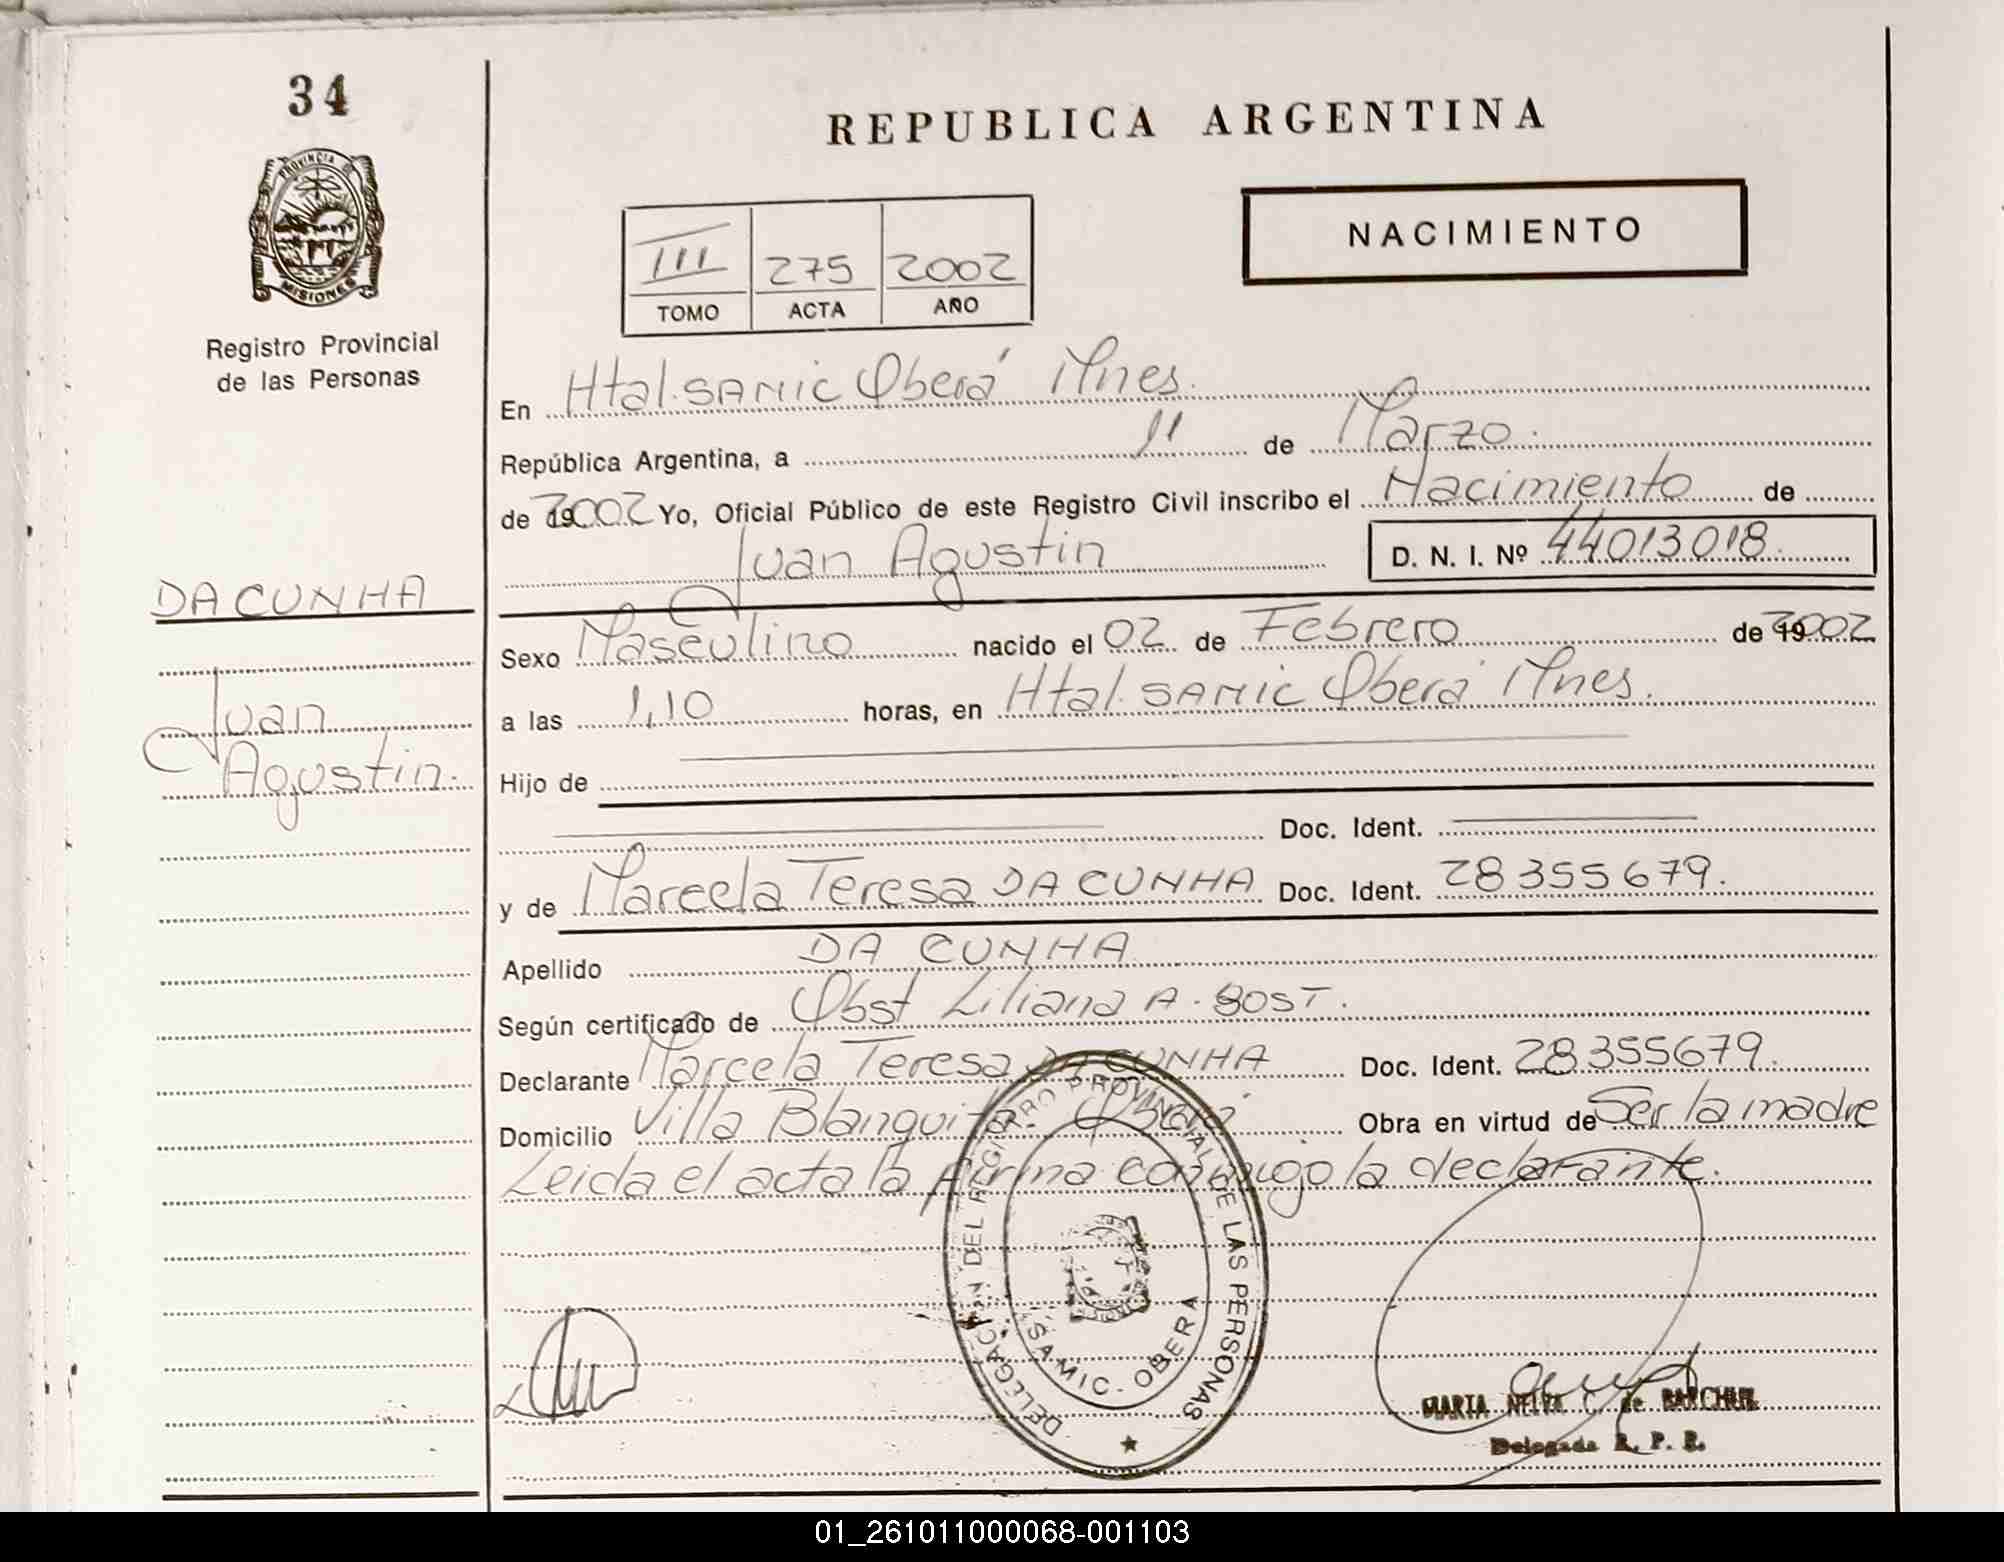 34
PROVINCIA DE
MISIONES
Registro Provincial
de las Personas
DA CUNHA
Juan
Agustin.
REPUBLICA ARGENTINA
NACIMIENTO
III 275 2002
TOMO ACTA AÑO
En Htal. SAMIC Oberá Mnes.
República Argentina, a 11 de Marzo.
de 2002 Yo, Oficial Público de este Registro Civil inscribo el Nacimiento de
Juan Agustin D. N. I. Nº 44013018.
Sexo Masculino nacido el 02 de Febrero de 2002
a las 1,10 horas, en Htal. SAMIC Oberá Mnes.
Hijo de
Doc. Ident.
y de Marcela Teresa DA CUNHA Doc. Ident. 28355679.
Apellido DA CUNHA
Según certificado de Obst Liliana A. BOST.
Declarante Marcela Teresa DA CUNHA Doc. Ident. 28355679.
Domicilio Villa Blanquita - Oberá Obra en virtud de Ser la madre
Leida el acta la firma conmigo la declarante.
DELEGACION DEL REGISTRO PROVINCIAL DE LAS PERSONAS
SAMIC - OBERA
MARTA C. de
Delegada R. P. P.
01_261011000068-001103